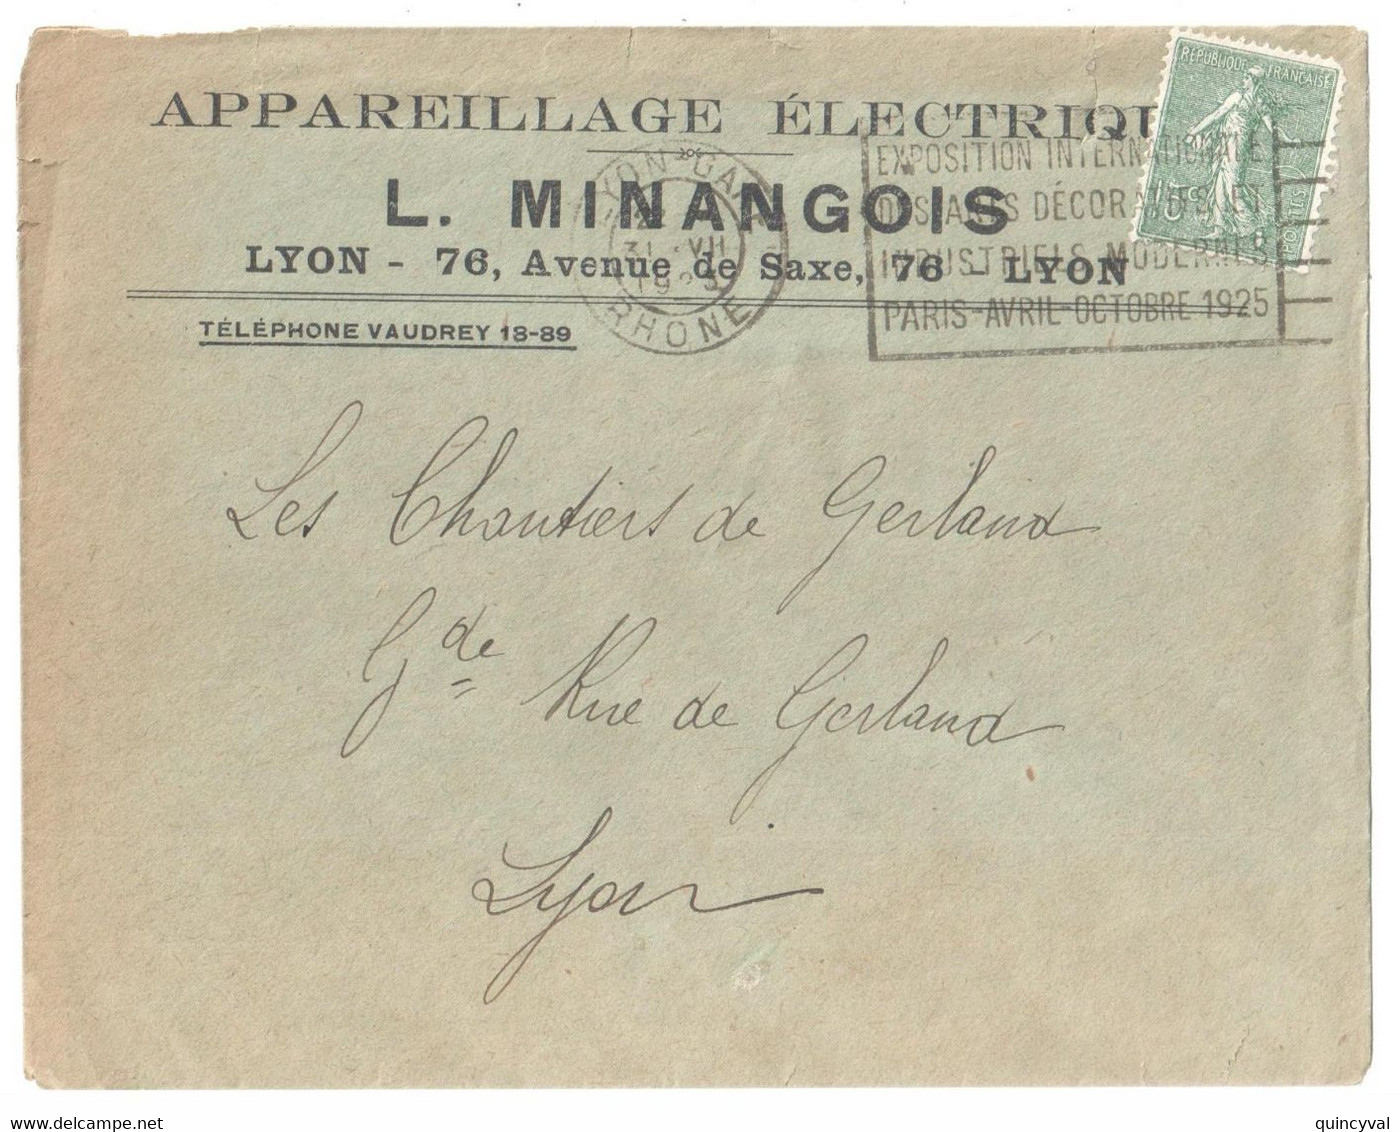 APPAREILLAGE ÉLECTRIQU
L. MINANGOIS
LYON - 76, Avenue de Saxe, 76 - LYON
TÉLÉPHONE VAUDREY 18-89
RÉPUBLIQUE FRANÇAISE
EXPOSITION INTERNATIONALE
DES ARTS DÉCORATIFS ET
INDUSTRIELS MODERNES
PARIS-AVRIL-OCTOBRE 1925
LYON-GARE
31 VII
RHONE
Les Chantiers de Gerland
Gde Rue de Gerland
Lyon
delcampe.net
quincyval